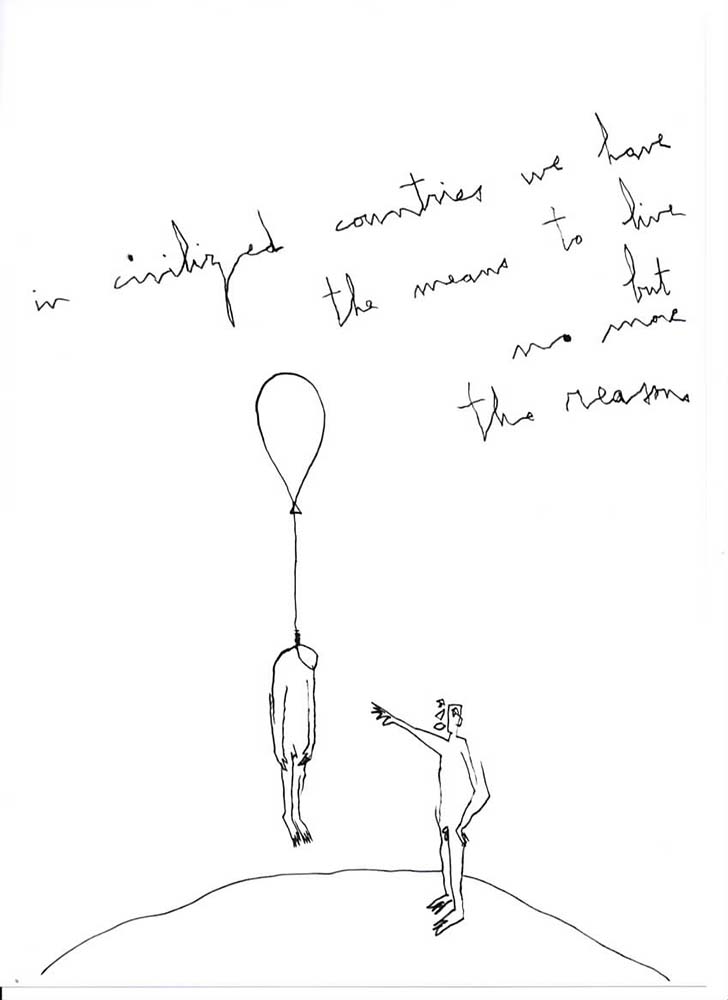 in civilized countries we have
the means to live
but
no more
the reasons